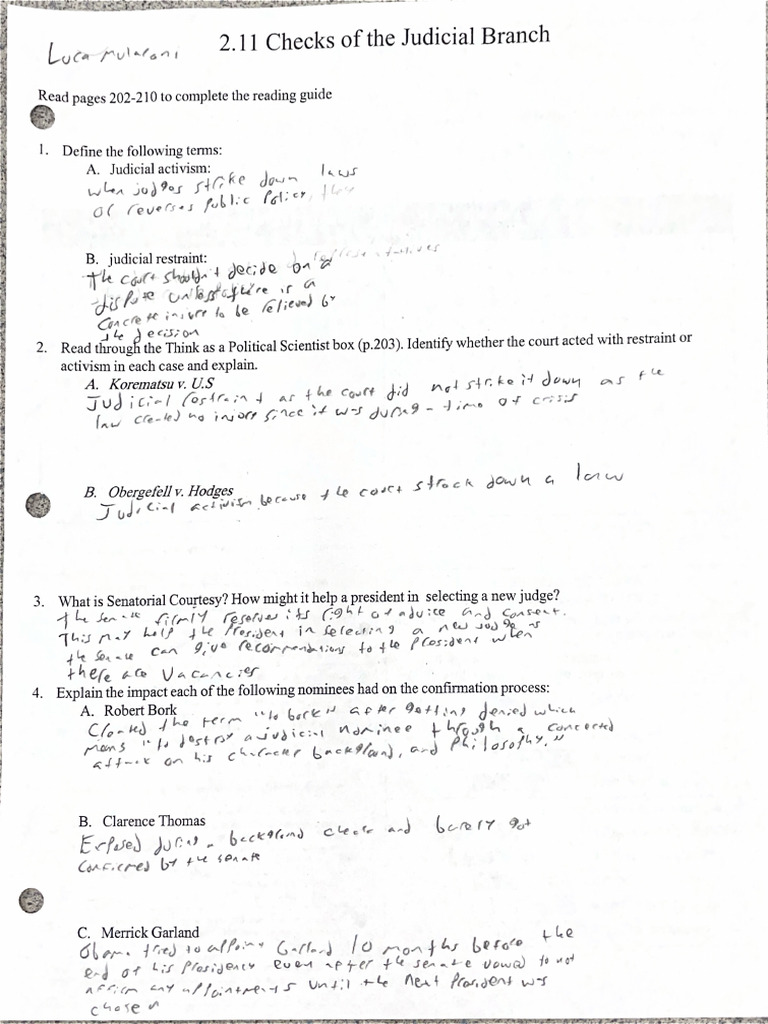 Luca Mularoni
2.11 Checks of the Judicial Branch
Read pages 202-210 to complete the reading guide
1. Define the following terms:
A. Judicial activism:
when judges strike down laws
or reverses public policy, they
B. judicial restraint:
The court shouldn't decide on a
dispute unless there is a
concrete injure to be relieved by
the decision
2. Read through the Think as a Political Scientist box (p.203). Identify whether the court acted with restraint or
activism in each case and explain.
A. Korematsu v. U.S
Judicial restraint as the court did not strike it down as the
law created no injore since it was during a time of crisis
B. Obergefell v. Hodges
Judicial activism because the court struck down a law
3. What is Senatorial Courtesy? How might it help a president in selecting a new judge?
the senate firmly reserves its right of advice and consent.
This may help the President in selecting a new judge as
the senate can give recommendations to the President when
there are vacancies
4. Explain the impact each of the following nominees had on the confirmation process:
A. Robert Bork
Created the term "to bork" after getting denied which
means "to destroy a judicial nominee through a concerted
attack on his character background, and Philosophy."
B. Clarence Thomas
Exposed during a background check and barely got
confirmed by the senate
C. Merrick Garland
Obama tried to appoint Garland 10 months before the
end of his Presidency even after the senate vowed to not
affirm any appointments until the next President was
chosen